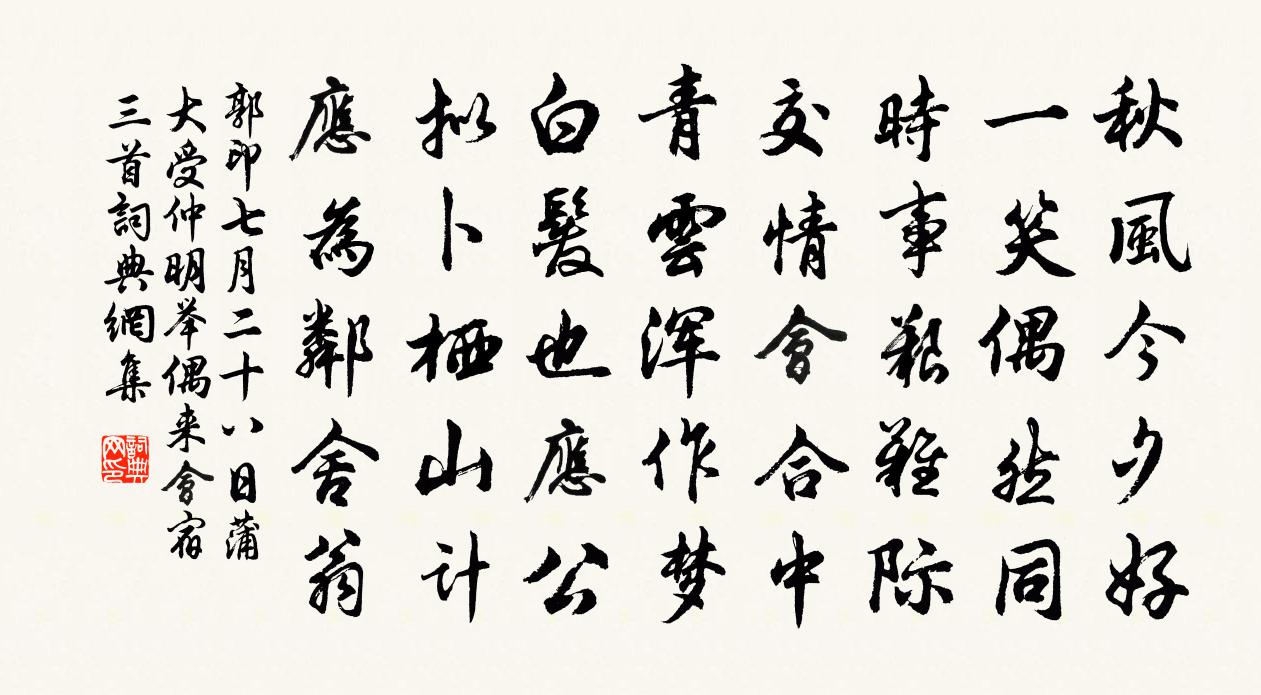 秋風今夕好
一笑偶然同
時事艱難际
交情會合中
青雲浑作梦
白髮也應公
拟卜栖山计
應為鄰舍翁
郭印七月二十八日蒲
大受仲明举偶来會宿
三首詞典網集
詞典网印